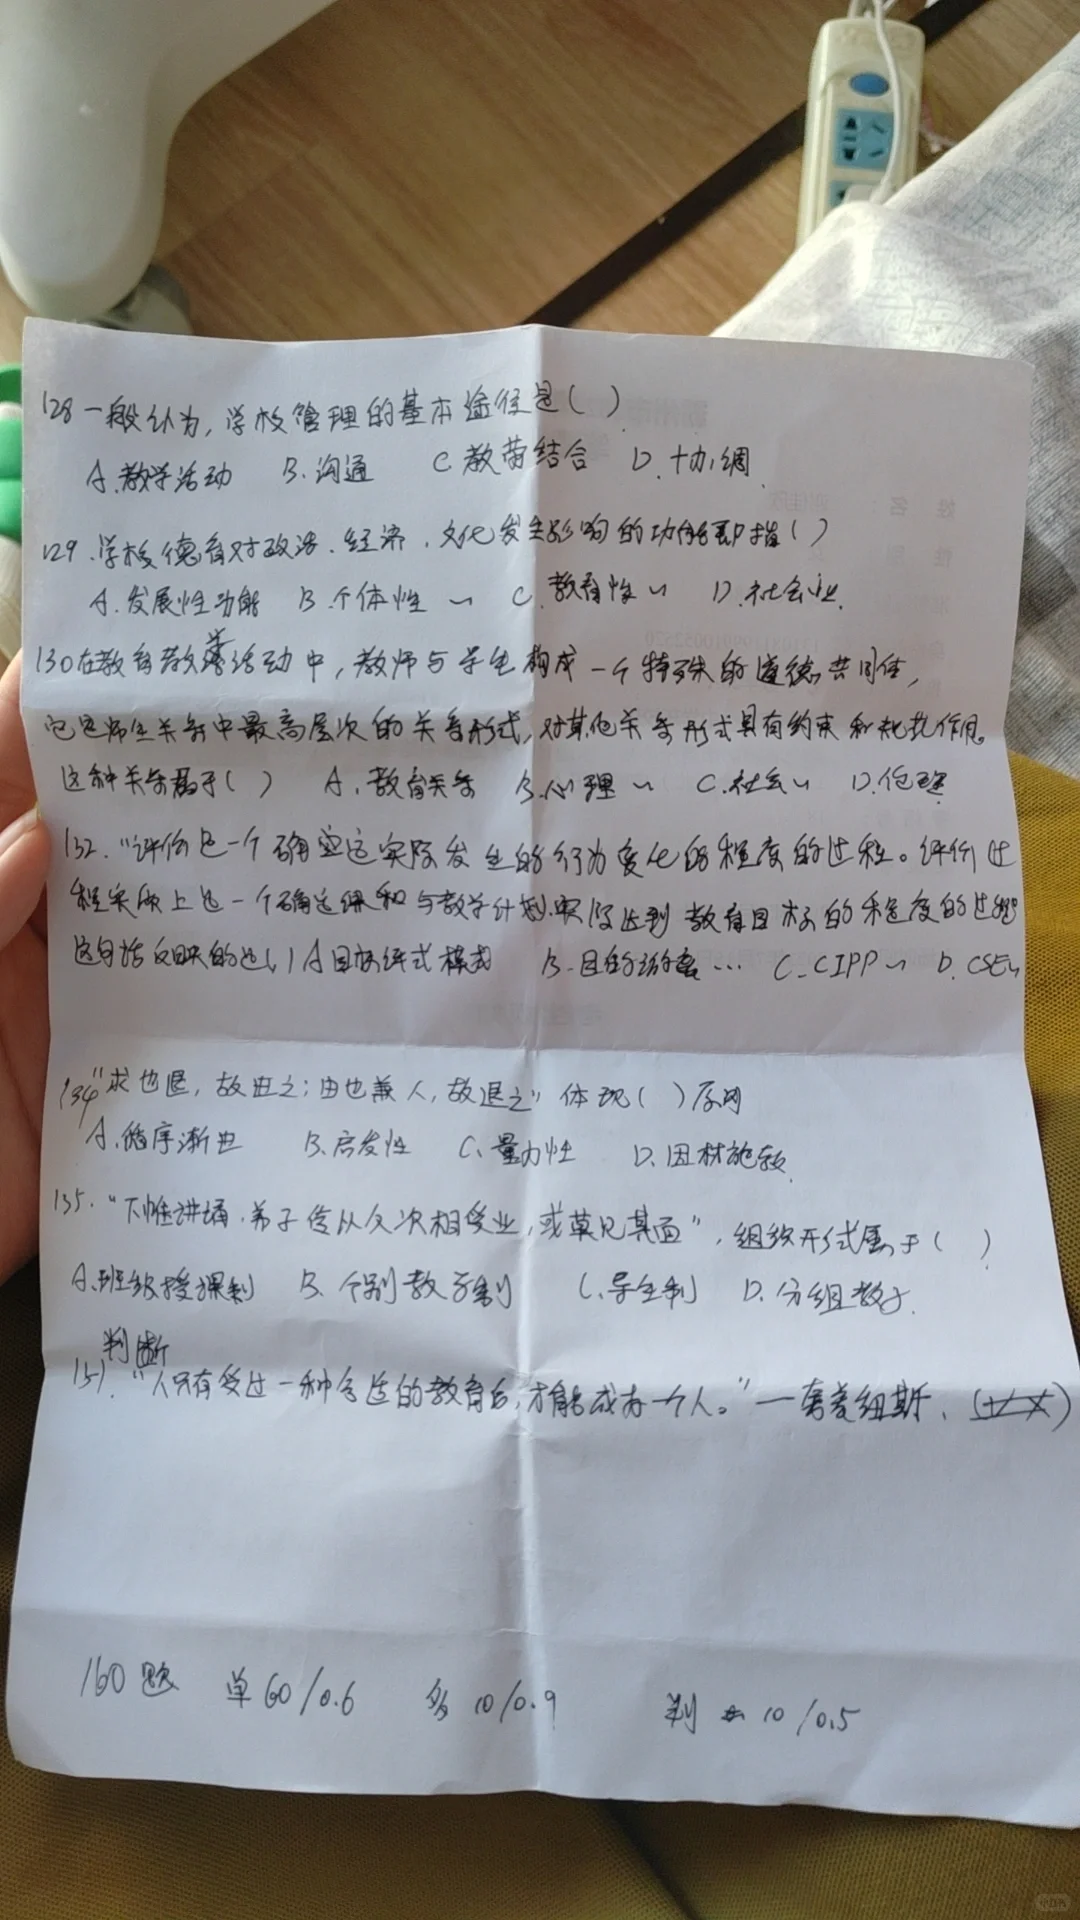 128 一般认为,学校管理的基本途径是( )
A.教学活动 B.沟通 C.教劳结合 D.协调
129.学校德育对政治、经济、文化发生影响的功能即指( )
A.发展性功能 B.个体性〜 C.教育性〜 D.社会性
130在教育教学活动中,教师与学生构成一个特殊的道德共同体,
它是师生关系中最高层次的关系形式,对其他关系形式具有约束和规范作用。
这种关系属于( ) A.教育关系 B.心理〜 C.社会〜 D.伦理
132.“评价是一个确定实际发生的行为变化的程度的过程。评价过
程实质上是一个确定课程与教学计划实际达到教育目标的程度的过程”
这句话反映的是( ) A目标评式模式 B.目的游离… C.CIPP〜 D.CSE〜
134“求也退,故进之;由也兼人,故退之”体现( )原则
A.循序渐进 B.启发性 C.量力性 D.因材施教
135.“下帷讲诵,弟子传以久次相受业,或莫见其面”,组织形式属于( )
A.班级授课制 B.个别教学制 C.导生制 D.分组教学
判断
151.“人只有受过一种合适的教育后,才能成为一个人。”—夸美纽斯.
160题 单60/0.6 多10/0.9 判10/0.5